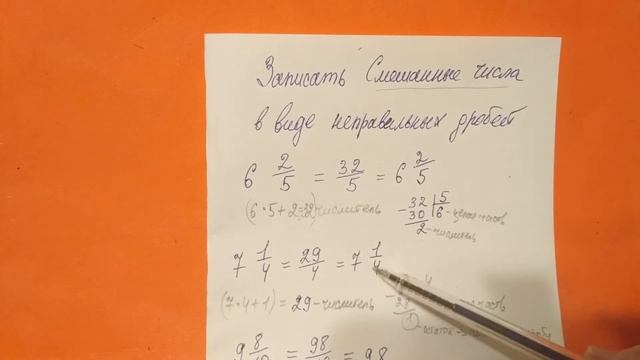 Записать Смешанные числа
в виде неправильных дробей
6 2/5 = 32/5 = 6 2/5
(6·5+2=32) числитель
32 | 5
-30 | 6 - целая часть
2 - числитель
7 1/4 = 29/4 = 7 1/4
(7·4+1) = 29 - числитель
часть
остаток
9 8/10 = 98/10 = 98